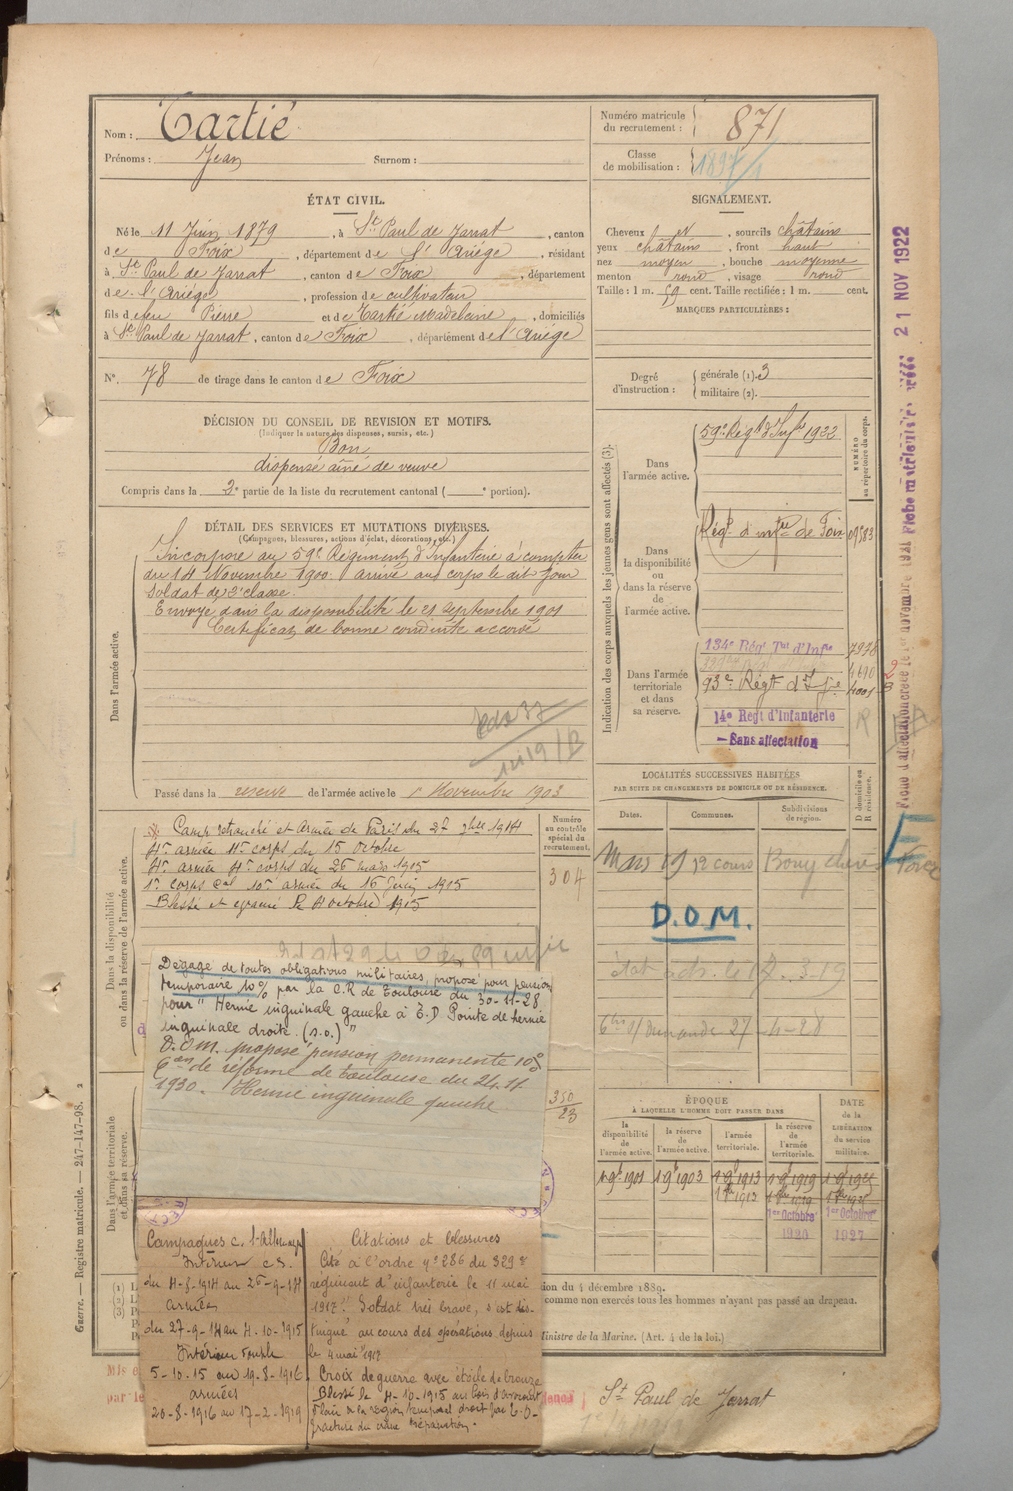 Nom : Tartié
Prénoms : Jean Surnom :
Numéro matricule du recrutement : 871
Classe de mobilisation : 1897/1
ÉTAT CIVIL.
Né le 11 Juin 1879, à St Paul de Jarrat, canton
de Foix, département de l'Ariège, résidant
à St Paul de Jarrat, canton de Foix, département
de l'Ariège, profession de cultivateur
fils de feu Pierre et de Tartié Madeleine, domiciliés
à St Paul de Jarrat, canton de Foix, département de l'Ariège
N°. 78 de tirage dans le canton de Foix
SIGNALEMENT.
Cheveux et, sourcils châtains
yeux châtains, front haut
nez moyen, bouche moyenne
menton rond, visage rond
Taille : 1 m. 59 cent. Taille rectifiée : 1 m. cent.
MARQUES PARTICULIÈRES :
Degré d'instruction : générale (1). 3
militaire (2).
DÉCISION DU CONSEIL DE REVISION ET MOTIFS.
(Indiquer la nature des dispenses, sursis, etc.)
Bon
dispensé aîné de veuve
Compris dans la 2e partie de la liste du recrutement cantonal ( e portion).
DÉTAIL DES SERVICES ET MUTATIONS DIVERSES.
(Campagnes, blessures, actions d'éclat, décorations, etc.)
Dans l'armée active.
Incorporé au 59e Régiment d'Infanterie à compter
du 14 Novembre 1900. arrivé au corps le dit jour
soldat de 2e classe.
Envoyé dans la disponibilité le 21 septembre 1901
Certificat de bonne conduite accordé
Passé dans la réserve de l'armée active le 1er Novembre 1903
Indication des corps auxquels les jeunes gens sont affectés (3).
NUMÉRO au répertoire du corps.
Dans l'armée active.
59e Régt d'Infie 1922
Dans la disponibilité ou dans la réserve de l'armée active.
Régt d'infrie de Foix 09583
Dans l'armée territoriale et dans sa réserve.
134e Régt Tal d'Infie
93e Régt d'Infie
14e Regt d'Infanterie
— Sans affectation
21 NOV 1922
LOCALITÉS SUCCESSIVES HABITÉES
PAR SUITE DE CHANGEMENTS DE DOMICILE OU DE RÉSIDENCE.
Dates. Communes. Subdivisions de région. D domicile ou R résidence.
Mars 19
D.O.M.
Dans la disponibilité ou dans la réserve de l'armée active.
Numéro au contrôle spécial du recrutement.
304
Camp retranché et Armée de Paris du 27 7bre 1914
4e armée 11e corps du 15 Octobre
4e armée 4e corps du 26 mars 1915
1er corps Cal 10e armée du 16 Juin 1915
Blessé et évacué le 4 octobre 1915
Dégagé de toutes obligations militaires, proposé pour pension
temporaire 10% par la C.R de Toulouse du 30-11-28
pour "Hernie inguinale gauche à T.D Pointe de hernie
inguinale droite. (s.o.)"
D.O.M. proposé pension permanente 10%
Con de réforme de Toulouse du 24.11
1930. Hernie inguinale gauche
350/23
Dans l'armée territoriale et dans sa réserve.
ÉPOQUE
À LAQUELLE L'HOMME DOIT PASSER DANS
DATE de la LIBÉRATION du service militaire.
la disponibilité de l'armée active. la réserve de l'armée active. l'armée territoriale. la réserve de l'armée territoriale.
1 9bre 1901 1 9bre 1903 1 9bre 1913 1 9bre 1919
1er Octobre 1920 1er Octobre 1927
Campagnes c. l'Allemagne
Intérieur c.S.
du 4-8-1914 au 26-9-14
armées
du 27-9-14 au 4-10-1915
Intérieur
5-10-15 au 19-8-1916
armées
20-8-1916 au 17-2-1919
Citations et blessures
Cité à l'ordre n° 286 du 329e
régiment d'infanterie le 11 mai
1917: Soldat très brave, s'est dis-
tingué au cours des opérations depuis
le 4 mai 1917
Croix de guerre avec étoile de bronze
Blessé le 4-10-1915 au bois
Plaie de la région temporal droit par E.O-
fracture du crâne trépanation.
sion du 4 décembre 1889.
comme non exercés tous les hommes n'ayant pas passé au drapeau.
Ministre de la Marine. (Art. 4 de la loi.)
St Paul de Jarrat
Guerre. — Registre matricule. — 247-147-98. 2